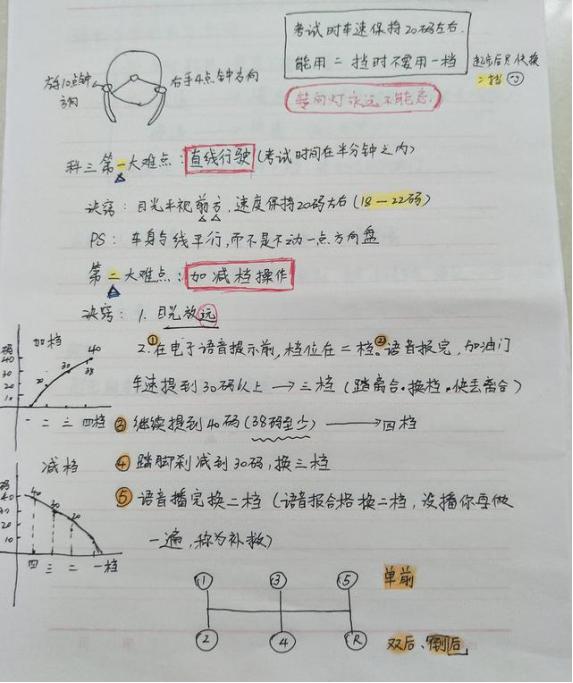 考试时车速保持20码左右.
能用二挡时不要用一档
起步后尽快换
二档
左手10点钟
方向
右手4点钟方向
转向灯永远不能忘.
科三第一大难点:直线行驶(考试时间在半分钟之内)
诀窍:目光平视前方,速度保持20码左右(18—22码)
PS:车身与线平行,而不是不动一点方向盘
第二大难点:加减档操作
诀窍:1.目光放远
加档
码
40
30
20
10
20
30
40
38
一 二 三 四档
2.①在电子语音提示前,档位在二档。②语音报完,加油门
车速提到30码以上→三档(踏离合.换档.快丢离合)
③继续提到40码(38码至少)→四档
减档
码
40
30
20
10
40
30
20
四 三 二 一档
④踏脚刹减到30码,换三档
⑤语音播完换二档(语音报合格换二档,没播你再做
一遍,称为补救)
① ③ ⑤ 单前
② ④ R 双后、倒后